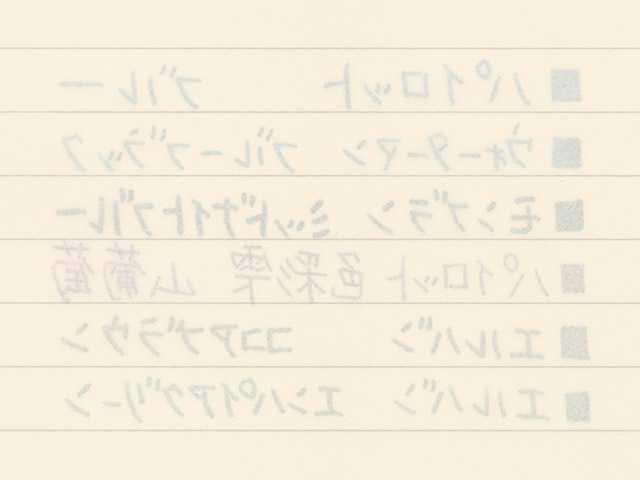 パイロット ブルー
ウォーターマン ブルーブラック
モンブラン ミッドナイトブルー
パイロット 色彩雫 山葡萄
エルバン ココアブラウン
エルバン エンパイアグリーン